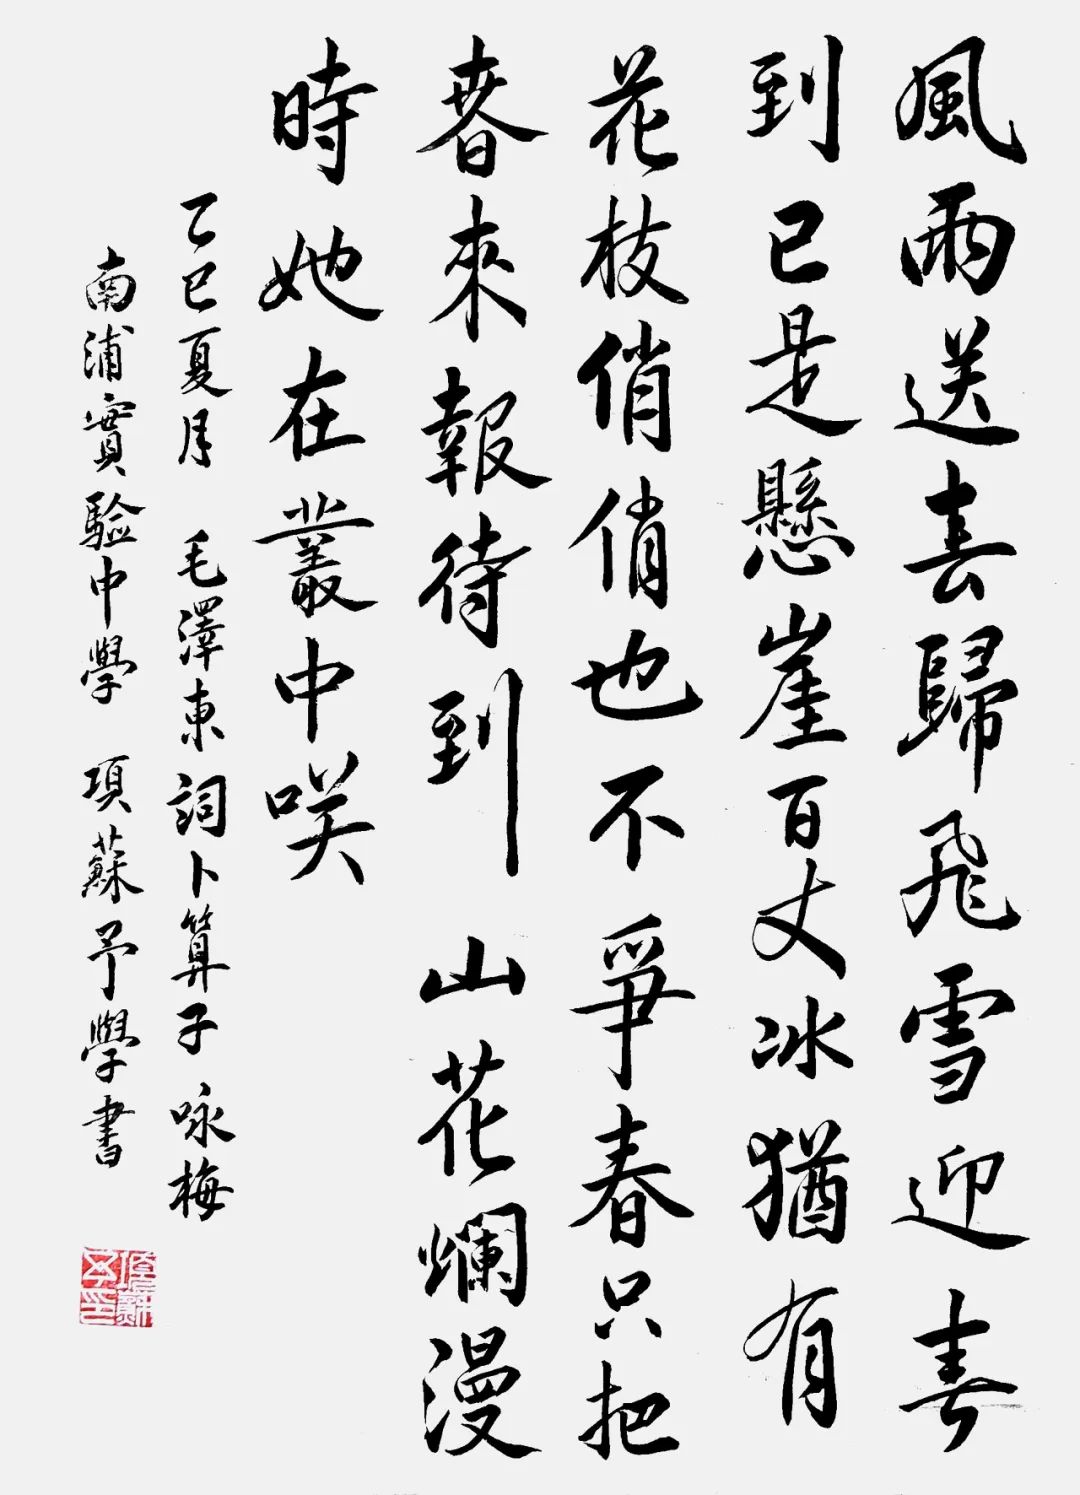 風雨送春歸飛雪迎春
到已是懸崖百丈冰猶有
花枝俏俏也不爭春只把
春來報待到山花爛漫
時她在叢中咲
乙巳夏月 毛澤東詞卜算子咏梅
南浦實驗中學 項蘇予學書
項蘇予印